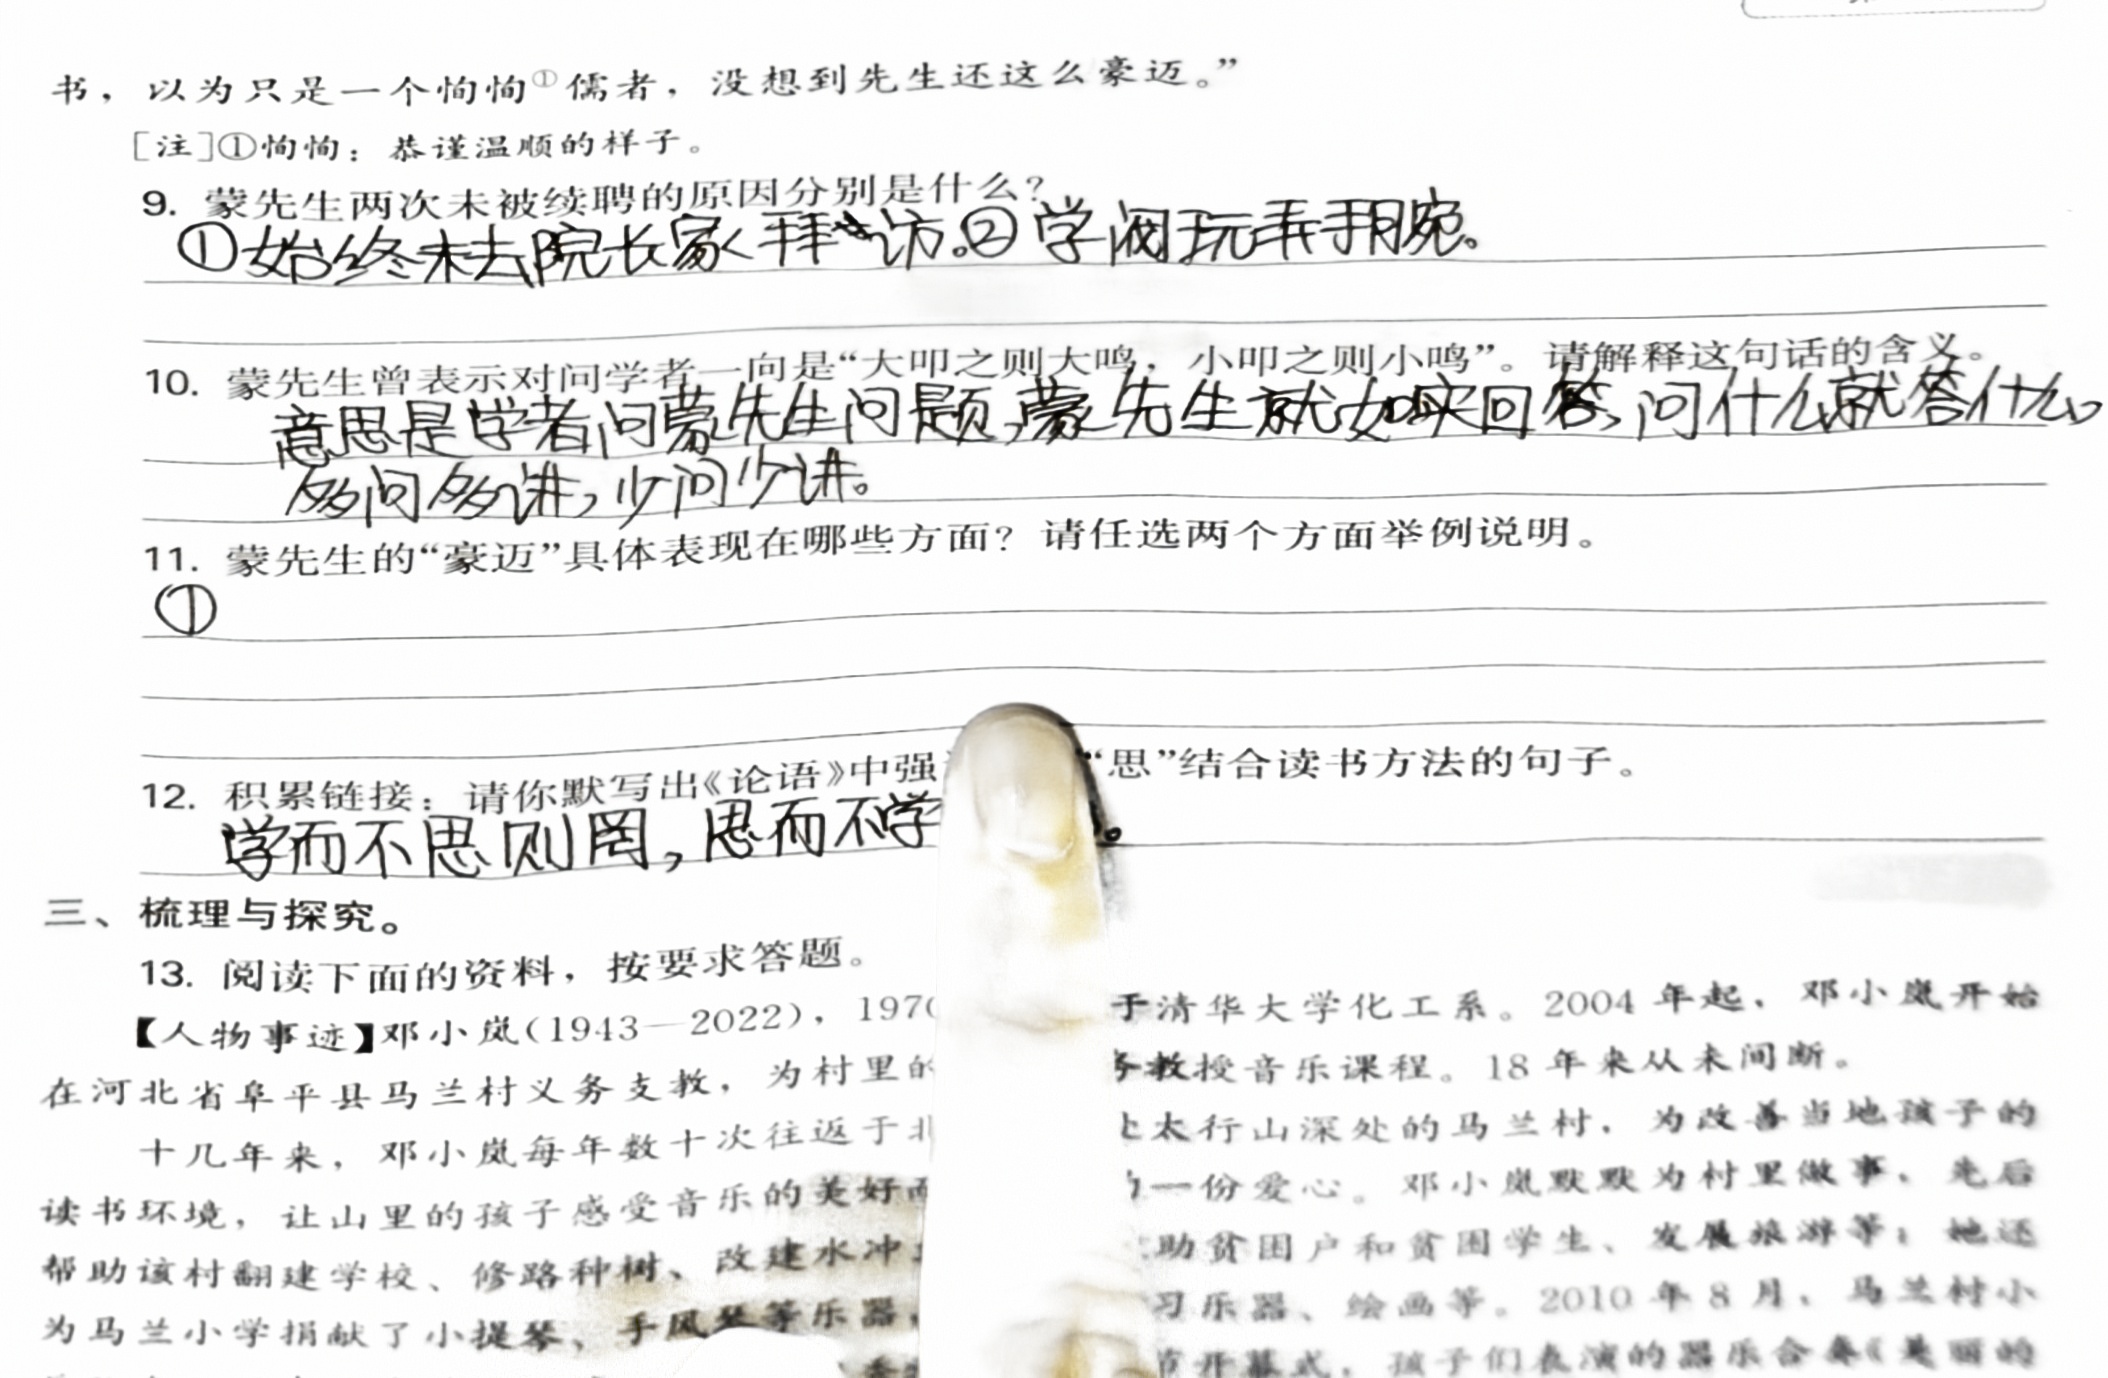 书，以为只是一个恂恂①儒者，没想到先生还这么豪迈。”
[注]①恂恂：恭谨温顺的样子。
9. 蒙先生两次未被续聘的原因分别是什么？
①始终未去院长家拜访。②学阀玩弄手腕。
10. 蒙先生曾表示对问学者一向是“大叩之则大鸣，小叩之则小鸣”。请解释这句话的含义。
意思是学者问蒙先生问题，蒙先生就如实回答，问什么就答什么。
多问多讲，少问少讲。
11. 蒙先生的“豪迈”具体表现在哪些方面？请任选两个方面举例说明。
①
12. 积累链接：请你默写出《论语》中强 “思”结合读书方法的句子。
学而不思则罔，思而不学 。
三、梳理与探究。
13. 阅读下面的资料，按要求答题。
【人物事迹】邓小岚（1943—2022），1970 于清华大学化工系。2004 年起，邓小岚开始
在河北省阜平县马兰村义务支教，为村里的 教授音乐课程。18 年来从未间断。
十几年来，邓小岚每年数十次往返于北 太行山深处的马兰村，为改善当地孩子的
读书环境，让山里的孩子感受音乐的美好而 一份爱心。邓小岚默默为村里做事，先后
帮助该村翻建学校、修路种树、改建水冲 助贫困户和贫困学生、发展旅游等；她还
为马兰小学捐献了小提琴、手风琴等乐器， 习乐器、绘画等。2010 年 8 月，马兰村小
节开幕式，孩子们表演的器乐合奏《美丽的